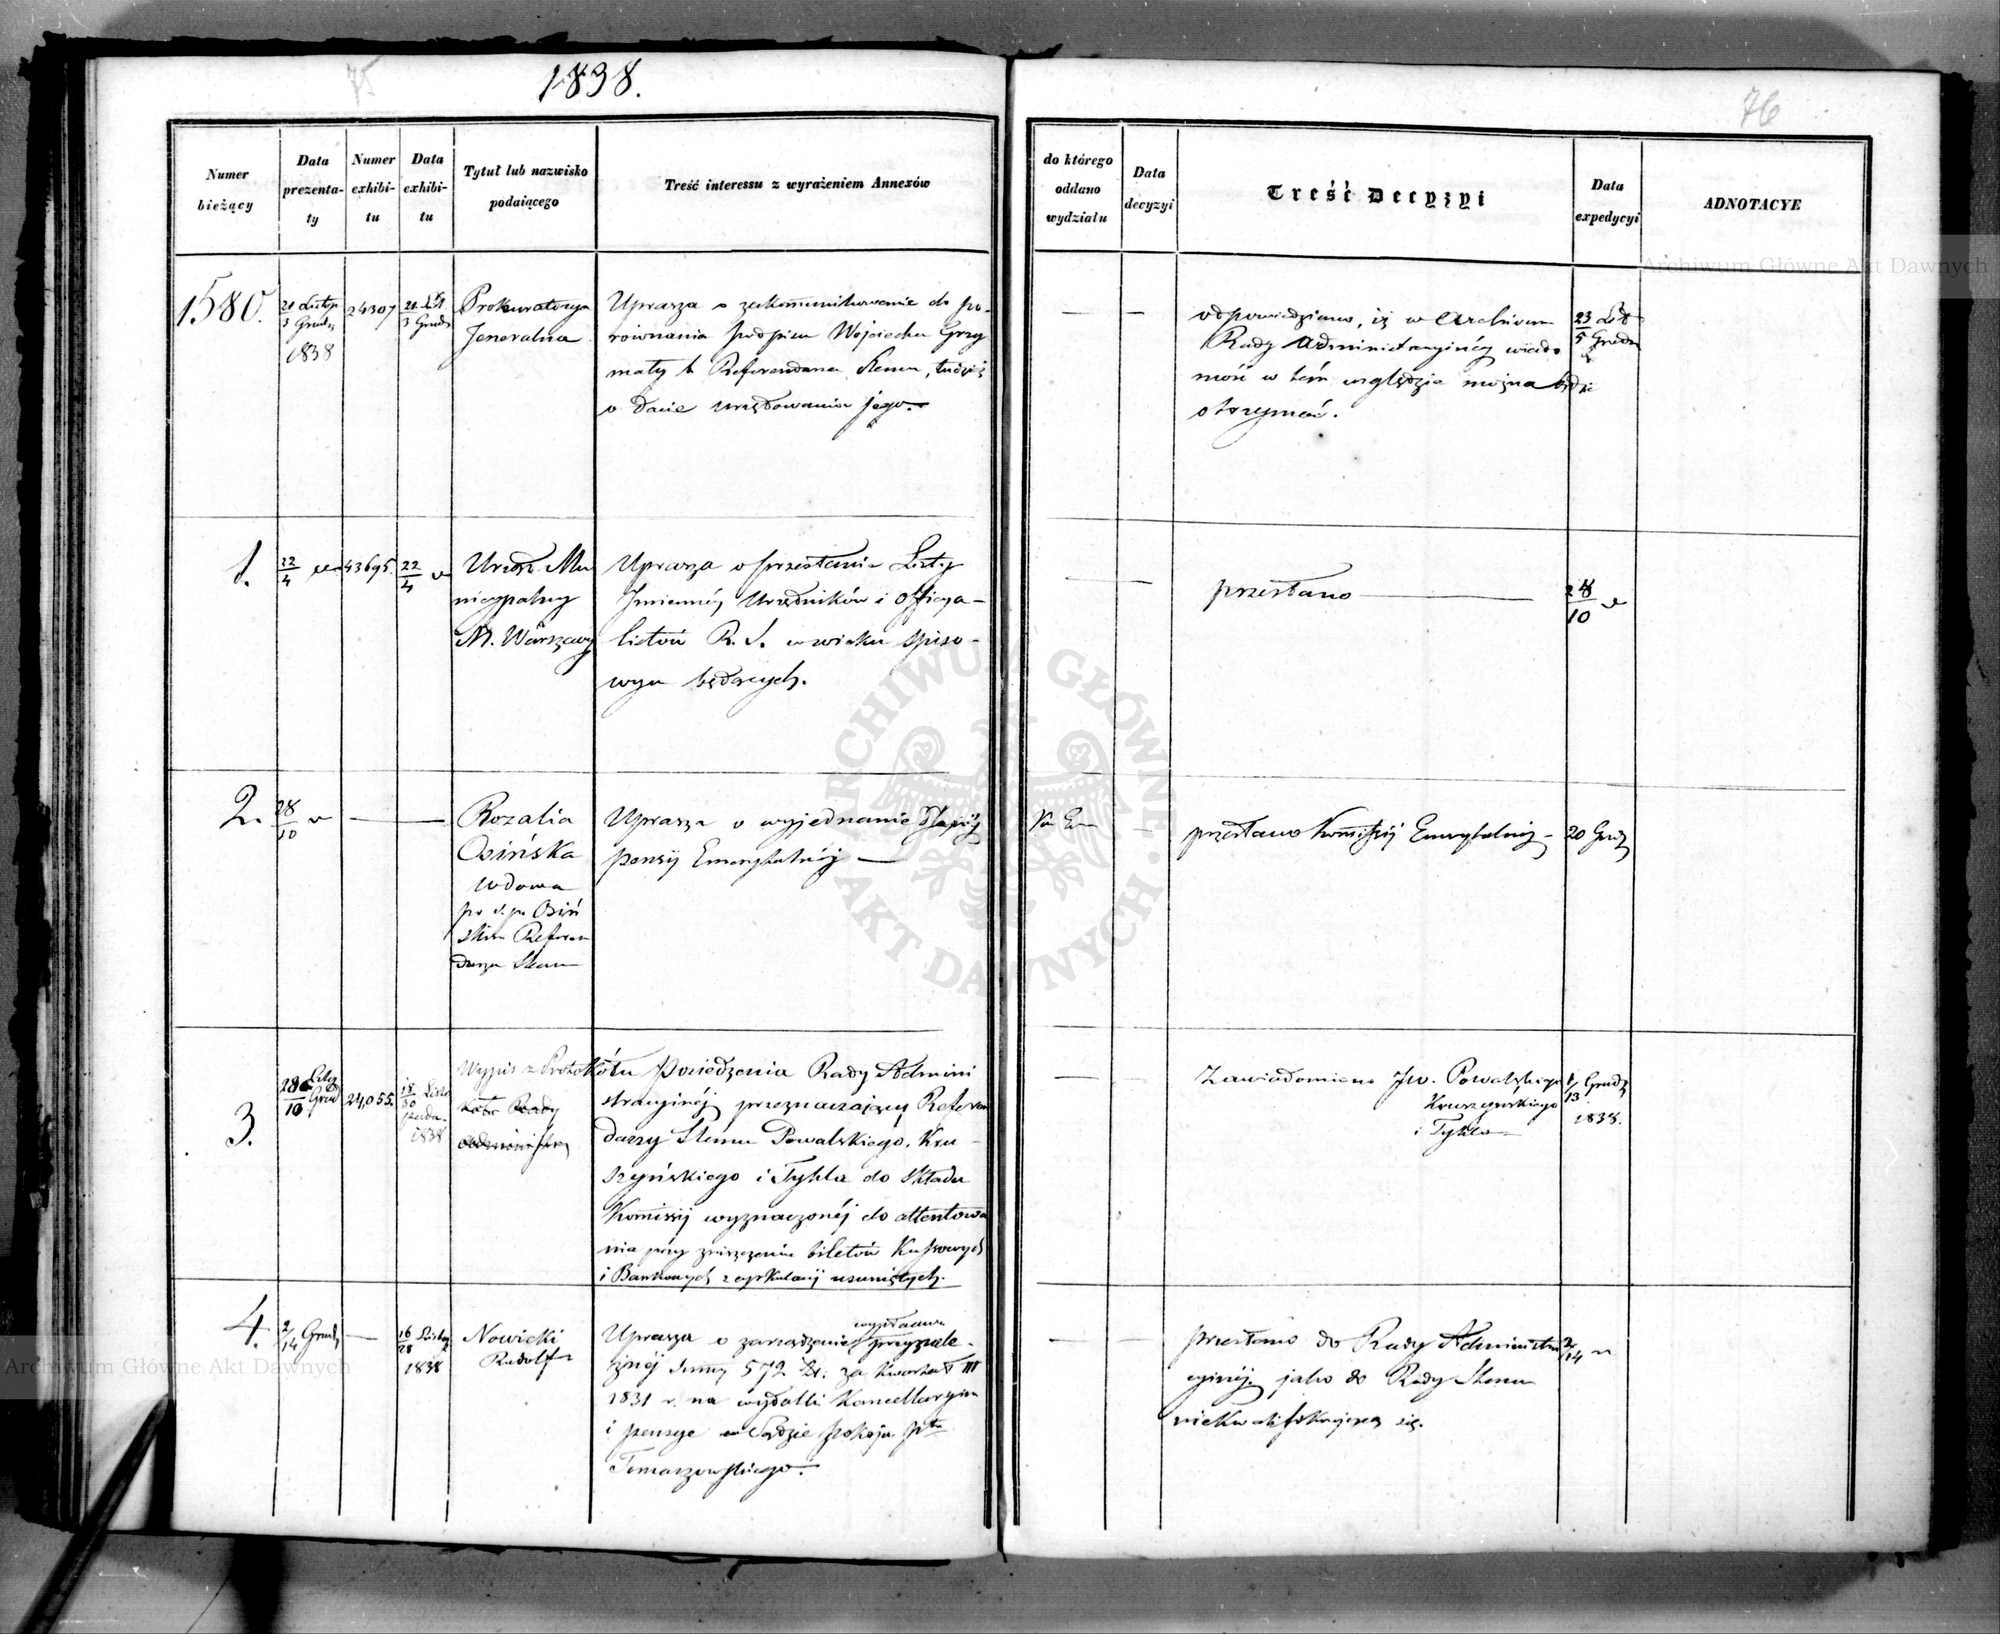 75
1838.
76
Numer bieżący
Data prezenta-ty
Numer exhibi-tu
Data exhibi-tu
Tytuł lub nazwisko podaiącego
Treść interessu z wyrażeniem Annexów
do którego oddano wydziału
Data decyzyi
Treść Decyzyi
Data expedycyi
ADNOTACYE
1580.
21 Listop
3 Grudz
1838
24307
21 List
3 Grudz
Prokuratorya
Jeneralna
Uprasza o zakommunikowanie do po-
równania podpisu Wojciecha Grzy
mały b. Referendarza Stanu, tudzież
o dacie urzędowania jego.
— —
odpowiedziano, iż w Archiwum
Rady Administracyjnéj wiado
mość w tém względzie można będzie
otrzymać.
23 List
5 Grudn
1.
22/4
43695.
22/4
Urząd Mu
nicypalny
M. Warszawy
Uprasza o przesłanie Listy
Imiennéj Urzędników i Officya-
listów R. S. w wieku spiso-
wym będących.
— —
przesłano —
28/10
2.
28/10
— —
Rozalia
Osińska
wdowa
po ś. p. Osiń
skim Referen
darzu Stanu
Uprasza o wyjednanie
pensyi Emerytalnéj —
—
przesłano Kommissyi Emerytalnéj —
20 Grudz
3.
28/10 Listop Grud
24,055.
18/30 Listo
pada.
1838
Wypis z Protokółu Posiedzenia Rady Admini
stracyjnéj przeznaczający Referen
darzy Stanu Powalskiego, Kru-
szyńskiego i Tykla do składu
Kommissyi wyznaczonéj do attentowa
nia przy zniszczeniu biletów Kassowych
i Bankowych z cyrkulacyi usuniętych.
Rady
— —
Zawiadomiono Jw. Powalskiego
Kruszyńskiego
i Tykla
1/13 Grudz
1838.
4.
2/14 Grudz
—
16/28 Listop
1838
Nowicki
Rudolf
wypłacenia
Uprasza o zarządzenie przynale-
żnéj summy 572 zł: za kwartał III
1831 r. na wydatki Kancellaryjne
i pensye w Sądzie pokoju ptu
Tomaszowskiego.
— —
przesłano do Rady Administra
cyjnéj. jako do Rady Stanu
niekwalifikującą się.
2/14
Archiwum Główne Akt Dawnych
Archiwum Główne Akt Dawnych
ARCHIWUM GŁÓWNE • AKT DAWNYCH •